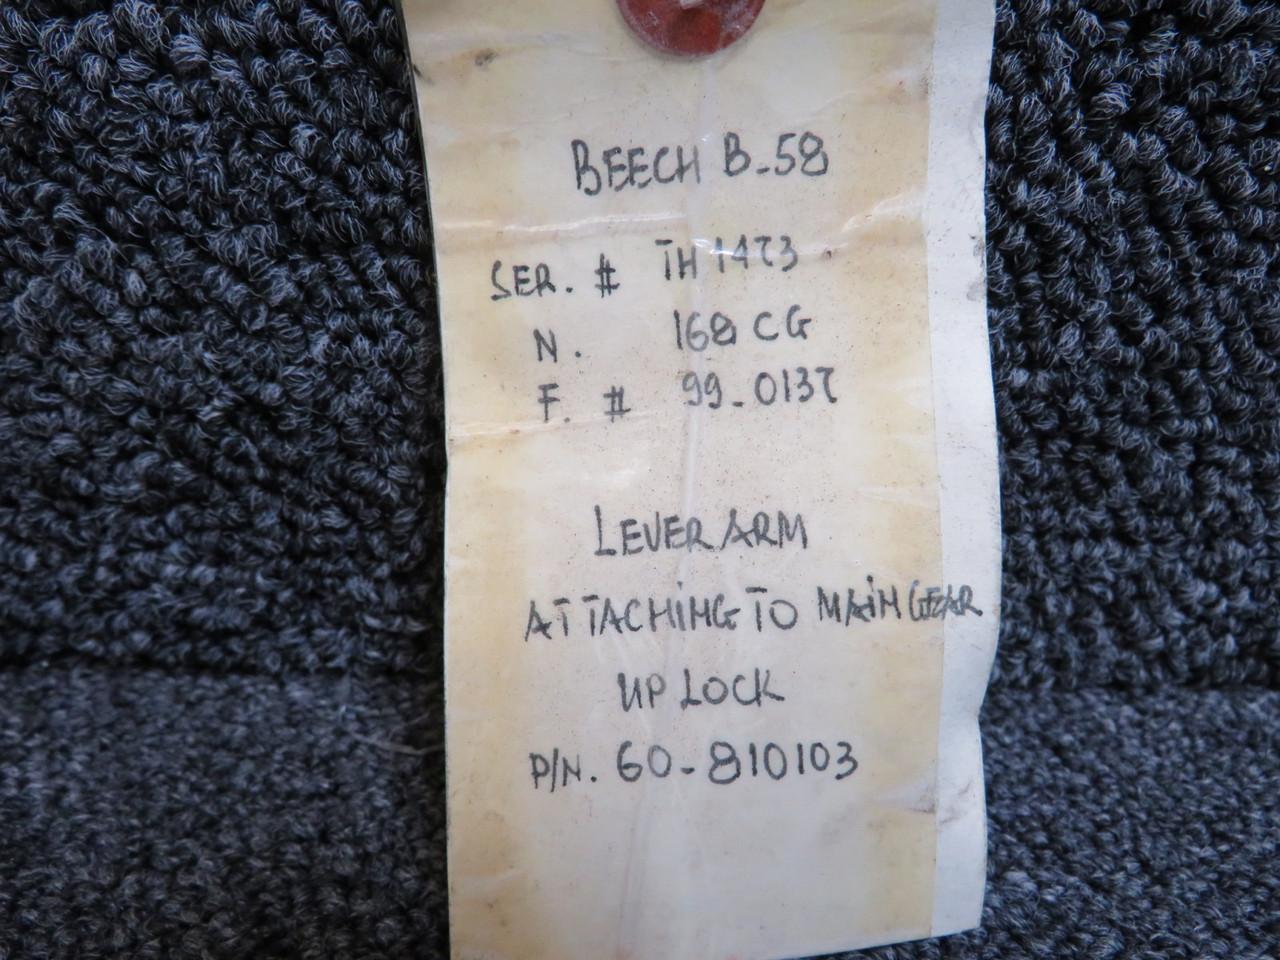 BEECH B-58
SER. # TH 1473
N. 168 CG
F. # 99-0137
LEVER ARM
ATTACHING TO MAIN GEAR
UP LOCK
P/N. 60-810103